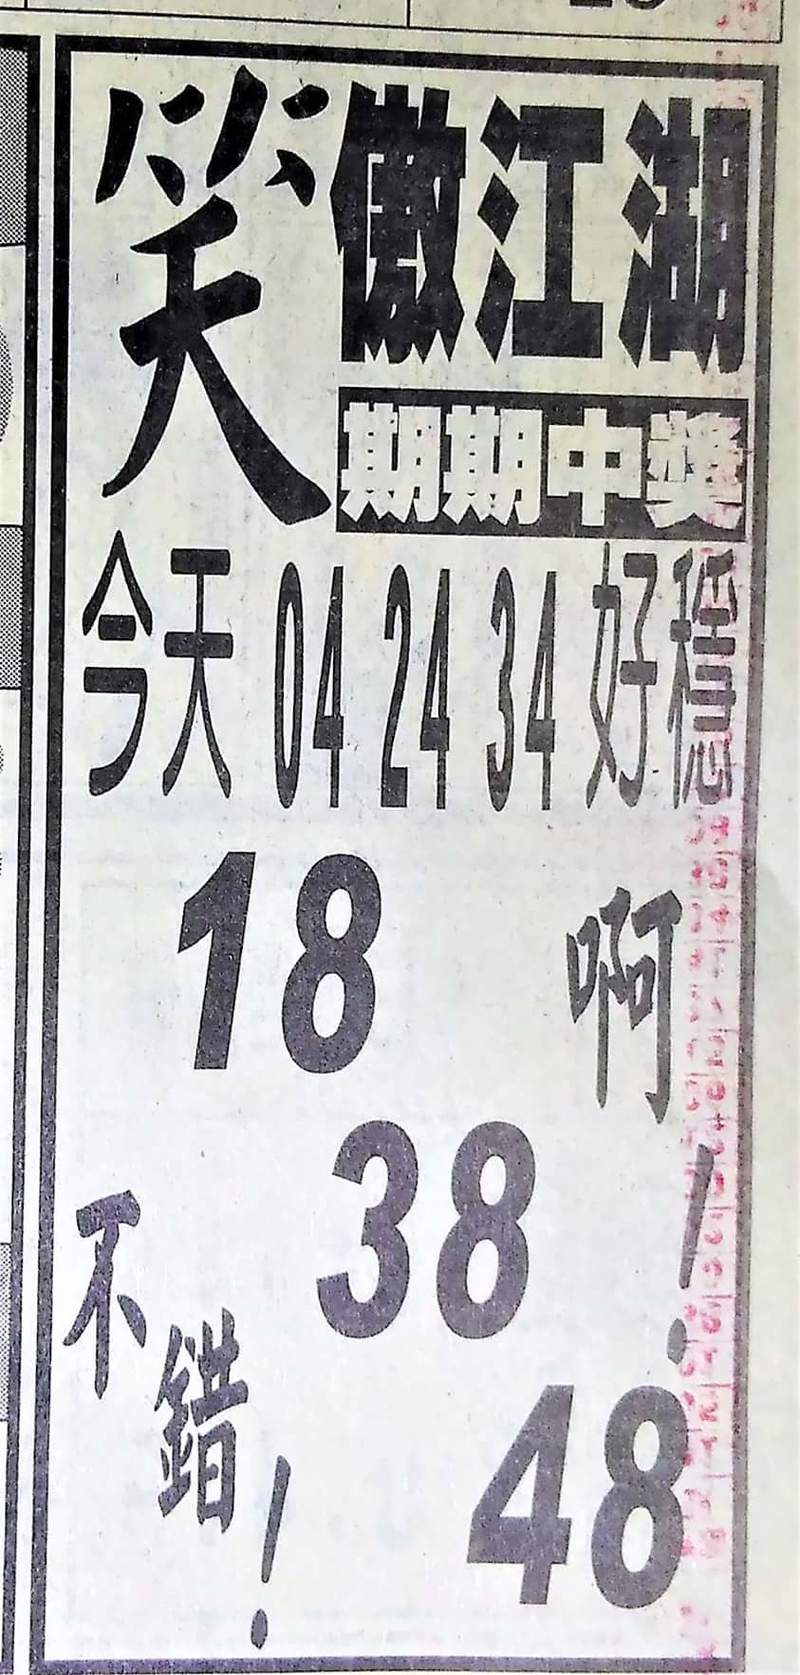 笑傲江湖
期期中獎
今天 04 24 34 好穩
18 啊!
38
不錯!
48